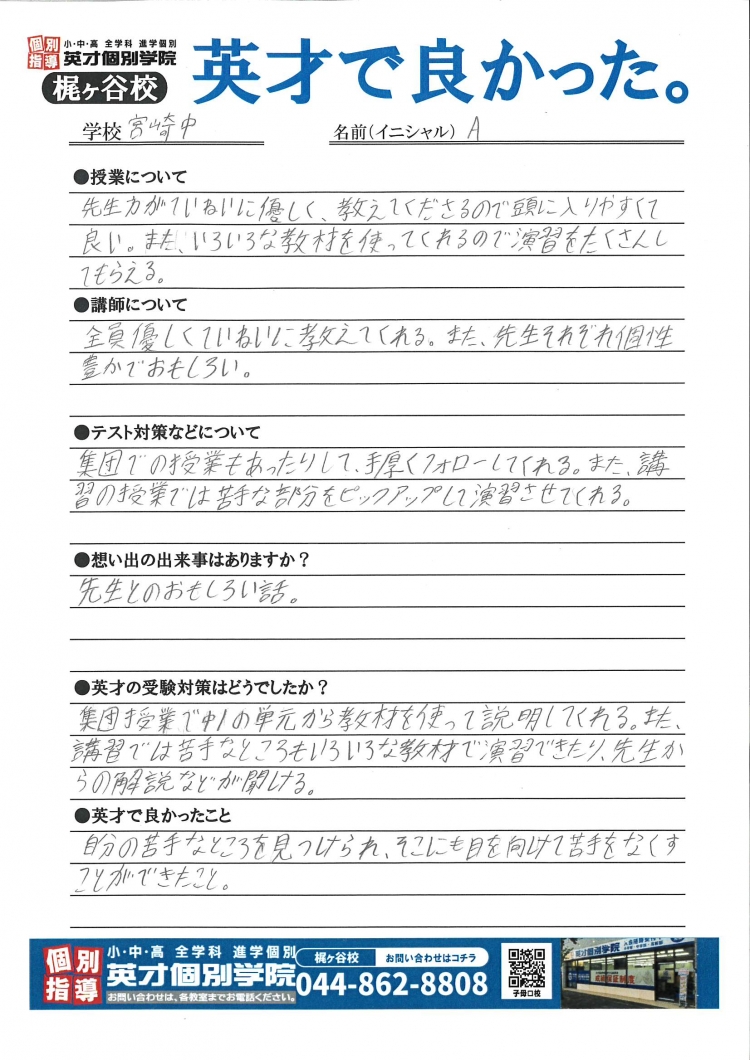 個別指導
小・中・高 全学科 進学個別
英才個別学院
梶ヶ谷校
英才で良かった。
学校 宮崎中
名前(イニシャル) A
●授業について
先生方がていねいに優しく、教えてくださるので頭に入りやすくて
良い。また、いろいろな教材を使ってくれるので演習をたくさんし
てもらえる。
●講師について
全員優しくていねいに教えてくれる。また、先生それぞれ個性
豊かでおもしろい。
●テスト対策などについて
集団での授業もあったりして、手厚くフォローしてくれる。また、講
習の授業では苦手な部分をピックアップして演習させてくれる。
●想い出の出来事はありますか？
先生とのおもしろい話。
●英才の受験対策はどうでしたか？
集団授業で中1の単元から教材を使って説明してくれる。また、
講習では苦手なところもいろいろな教材で演習できたり、先生か
らの解説などが聞ける。
●英才で良かったこと
自分の苦手なところを見つけられ、そこにも目を向けて苦手をなくす
ことができたこと。
個別指導
小・中・高 全学科 進学個別
英才個別学院
お問い合わせは、各教室までお電話ください。
梶ヶ谷校
お問い合わせはコチラ
044-862-8808
子母口校
英才個別学院